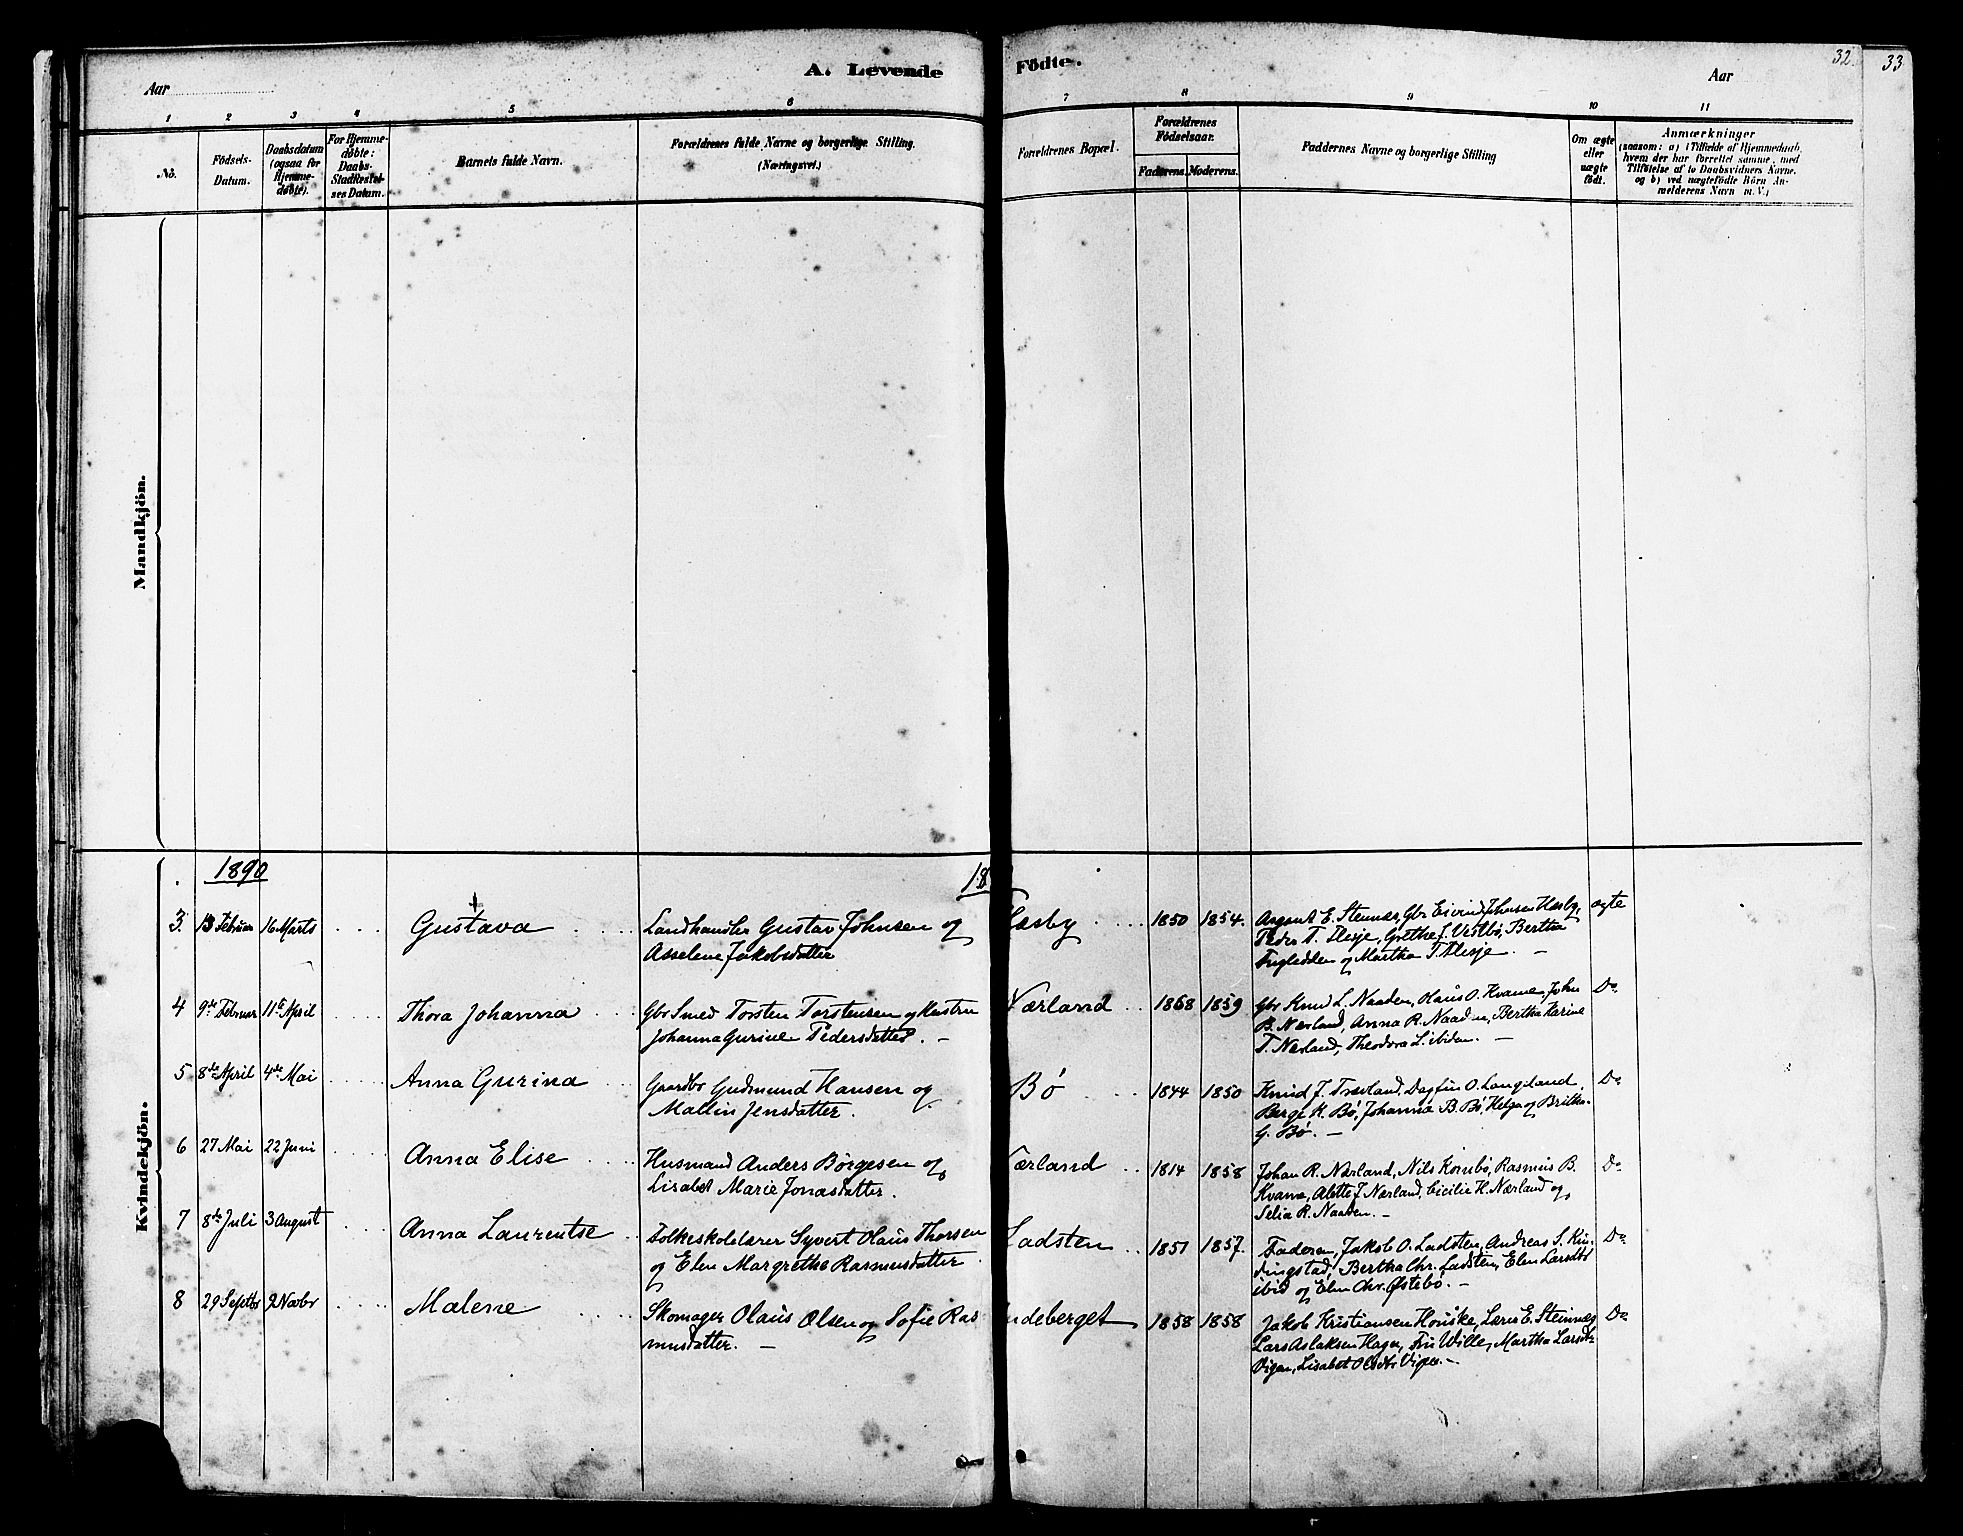 A. Levende
Födte.
32.
33
Aar
Aar
1
2
3
4
5
6
7
8
9
10
11
No.
Födsels-
Datum.
Daabsdatum
(ogsaa for
Hjemme-
döbte).
For Hjemme-
döbte:
Daabs-
Stadfæstel-
ses Datum.
Barnets fulde Navn.
Forældrenes fulde Navne og borgerlige Stilling.
(Næringsvei.)
Forældrenes Bopæl.
Forældrenes
Födselsaar.
Faderens.
Moderens.
Faddernes Navne og borgerlige Stilling
Om ægte
eller
uægte
födt.
Anmærkninger
(saasom: a) i Tilfælde af Hjemmedaab,
hvem der har forrettet samme, med
Tilföielse af to Daabsvidners Navne.
og b) ved uægtefödte Börn An-
melderens Navn m. V.)
Mandkjön.
Kvindekjön.
1890
18
3. 13 Februar 16 Marts
Gustava
Landhandler Gustav Johnsen og
Asselene Jakobsdatter
æsby
1850 1854.
Aagaat E. Stennæs, Gbr Eivind Johnsen Hæsby,
Peder T. Flesje, Grethe J. Vestbø, Bertha
og Martha T. Flesje. —
ægte
4 9de Februar 11te April
Thora Johanna
Gbr Smed Torsten Torstensen og Hustru
Johanna Gurine Pedersdatter. —
Nærland
1868 1859.
Gbr Knud L. Naaden, Olaus O. Kvame, John
B. Nærland, Anna R. Naaden, Bertha Karine
T. Nærland, Theodora L. ibidem. —
Do
5 8de April 4de Mai
Anna Gurina
Gaardbr Gudmund Hansen og
Mallin Jensdatter.
Bø
1844 1850
Knud J. Tværland, Dagfin O. Langeland,
Berge K. Bø, Johanna B. Bø, Helga og Britha
G. Bø. —
Do
6 27 Mai 22 Juni
Anna Elise
Husmand Anders Børgesen og
Lisabet Marie Jonasdatter.
Nærland
1814 1858
Johan R. Nærland, Nils Kornbø, Rasmus B.
Kvame, Alette J. Nærland, Cicilie H. Nærland og
Selia R. Naaden. —
Do
7 8de Juli 3 August
Anna Laurentse
Folkeskolelærer Syvert Olaus Thorsen
og Elen Margrethe Rasmusdatter
Ladsten
1851 1857.
Faderen, Jakob O. Ladsten, Andreas S. Kin-
dingstad, Bertha Chr. Ladsten, Elen Larsdtr
ibid og Elen Chr. Østebø. —
Do
8 29 Septbr 9 Novbr
Malene
Skomager Olaus Olsen og Sofie Ras
musdatter. —
ndeberget
1858 1858
Jakob Kristiansen Hauske, Lærer E. Steinnes
Lars Aslaksen Hage, Fru Wille, Martha Larsdtr
Vigen, Lisabet Olsdtr Vigen. —
Do